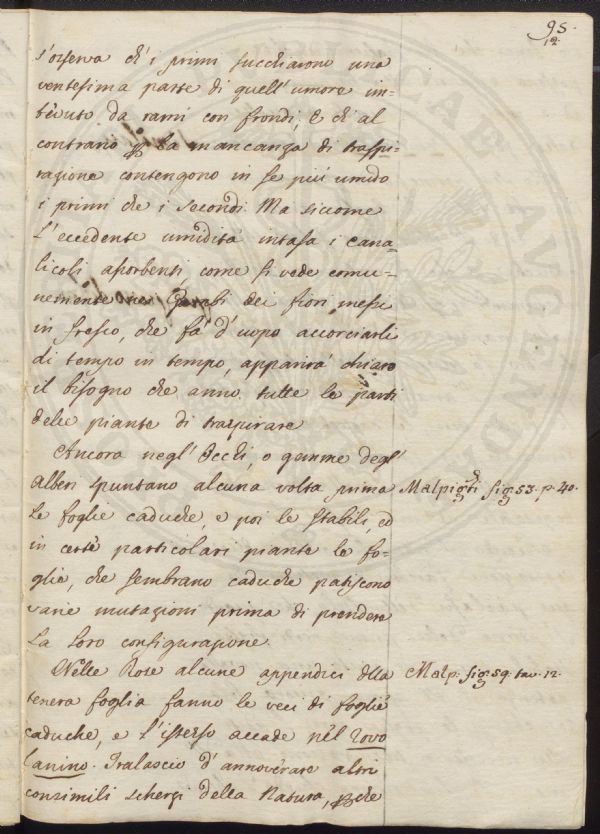 95.
12
s'osserva ch'i primi succhiarono una
ventesima parte di quell'umore im=
bevuto da rami con frondi, e ch'al
contrario ꝑ la mancanza di traspi-
razione contengono in se piú umido
i primi che i secondi. Ma siccome
l'eccedente umidità intasa i cana-
licoli assorbenti, come si vede comu=
nemente nei gambi dei fiori messi
in fresco, che fà d'uopo accorciarli
di tempo in tempo, apparirà chiaro
il bisogno che anno tutte le parti
delle piante di traspirare.
Ancora negl'Occhi, o gemme degl'
Alberi spuntano alcuna volta prima
le foglie caduche, e poi le stabili, ed
in certe particolari piante le fo=
glie, che sembrano caduche patiscono
varie mutazioni prima di prendere
la loro configurazione.
Nelle Rose alcune appendici dlla
tenera foglia fanno le veci di foglie
caduche, e l'istesso accade nel rovo
canino. Tralascio d'annoverare altri
consimili scherzi della Natura, ꝑche
Malpighi fig. 53. p. 40.
Malp. fig. 59. tav. 12.